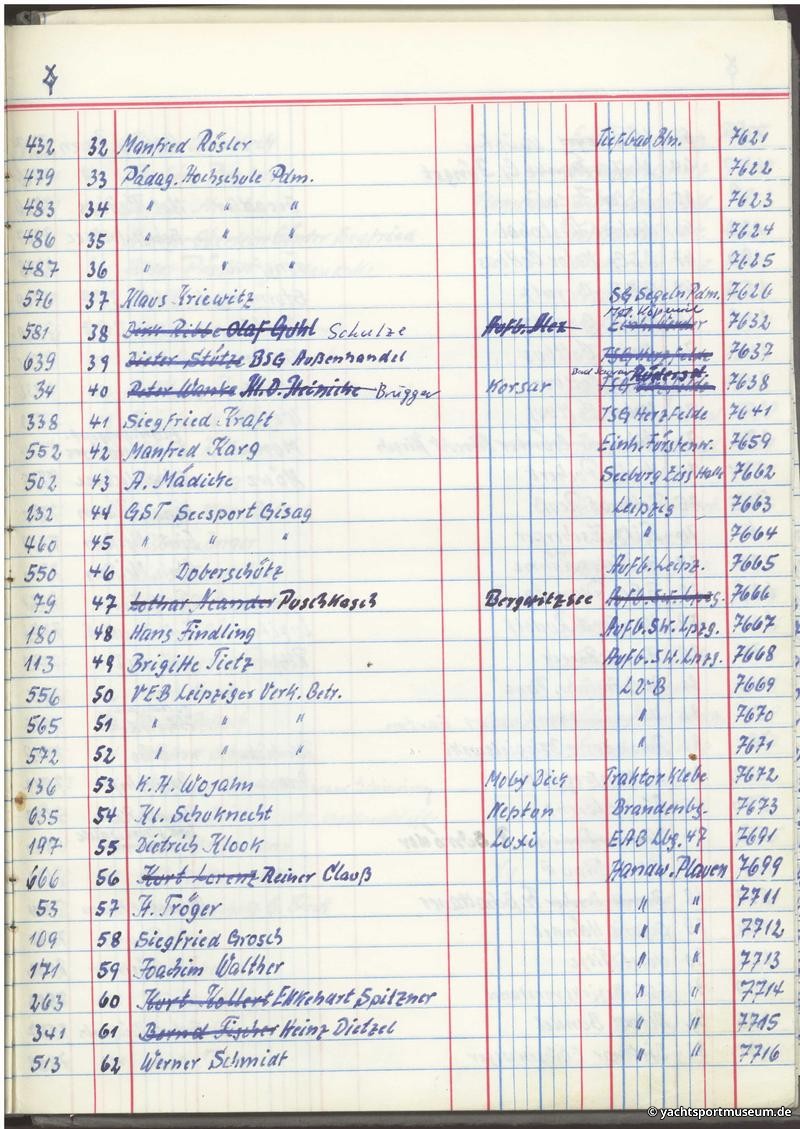 432 32 Manfred Rösler Tiefbau Bln. 7621
479 33 Pädag. Hochschule Pdm. 7622
483 34 " " " 7623
486 35 " " " 7624
487 36 " " " 7625
576 37 Klaus Kriewitz SG Segeln Pdm. 7626
581 38 Dirk Ribbe Olaf Guhl Schulze Aufb. 7632
639 39 Dieter Stütze BSG Außenhandel TSG Herzfelde 7637
34 40 Peter Wanke M.O. Heinicke Brügger Korsar Bad Saarow Rüdersd. TSG 7638
338 41 Siegfried Kraft TSG Herzfelde 7641
552 42 Manfred Karg Einh. Fürstenw. 7659
502 43 A. Mädicke Seeburg Eiss Halle 7662
232 44 GST Seesport Gisag Leipzig 7663
460 45 " " " " 7664
550 46 Doberschütz Aufb. Leipz. 7665
79 47 Lothar Neander Puschkasch Bergwitzsee Aufb. S.W. Lpzg. 7666
180 48 Hans Findling Aufb. S.W. Lpzg. 7667
113 49 Brigitte Tietz Aufb. S.W. Lpzg. 7668
556 50 VEB Leipziger Verk. Betr. LVB 7669
565 51 " " " " 7670
572 52 " " " " 7671
136 53 K.H. Wojahn Moby Dick Traktor Klebe 7672
635 54 Kl. Schuknecht Neptun Brandenbg. 7673
197 55 Dietrich Klook Luxi EAB Lbg. 47 7691
666 56 Kurt Lorenz Reiner Clauß Handw. Plauen 7699
53 57 H. Tröger " " 7711
109 58 Siegfried Grosch " " 7712
171 59 Joachim Walther " " 7713
263 60 Kurt Kollert Ekkehart Spitzner " " 7714
341 61 Bernd Fischer Heinz Dietzel " " 7715
513 62 Werner Schmidt " " 7716
© yachtsportmuseum.de